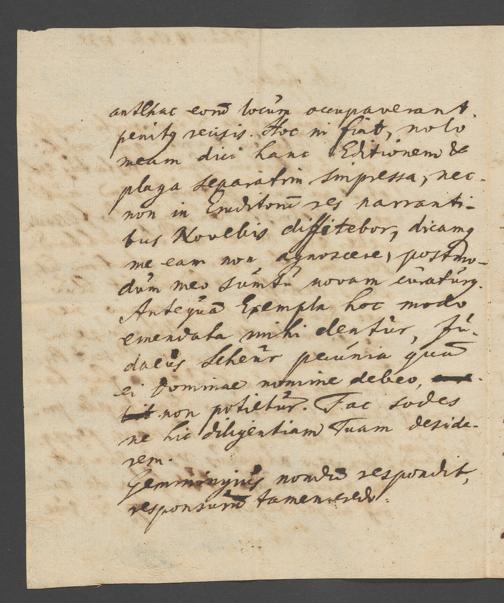 antehac eorū locum occupaverant,
penitq recisis. Hoc ni fiat, nolo
meam dici hanc Editionem &
plaga separatim impressa, nec-
non in Eruditorū res narranti-
bus Novellis diffitebor, dicamq
me eam non agnoscere, postmo-
dum meo sumtu novam curaturq.
Antequā Exempla hoc modo
emendata mihi dentur, Ju-
daeus Scheur pecunia quā
ei Dominae nomine debeo,
non potietur. Fac sodes
ne hic diligentiam Tuam deside-
rem.
Gemmingius nondū respondit,
responsurū tamen credo.